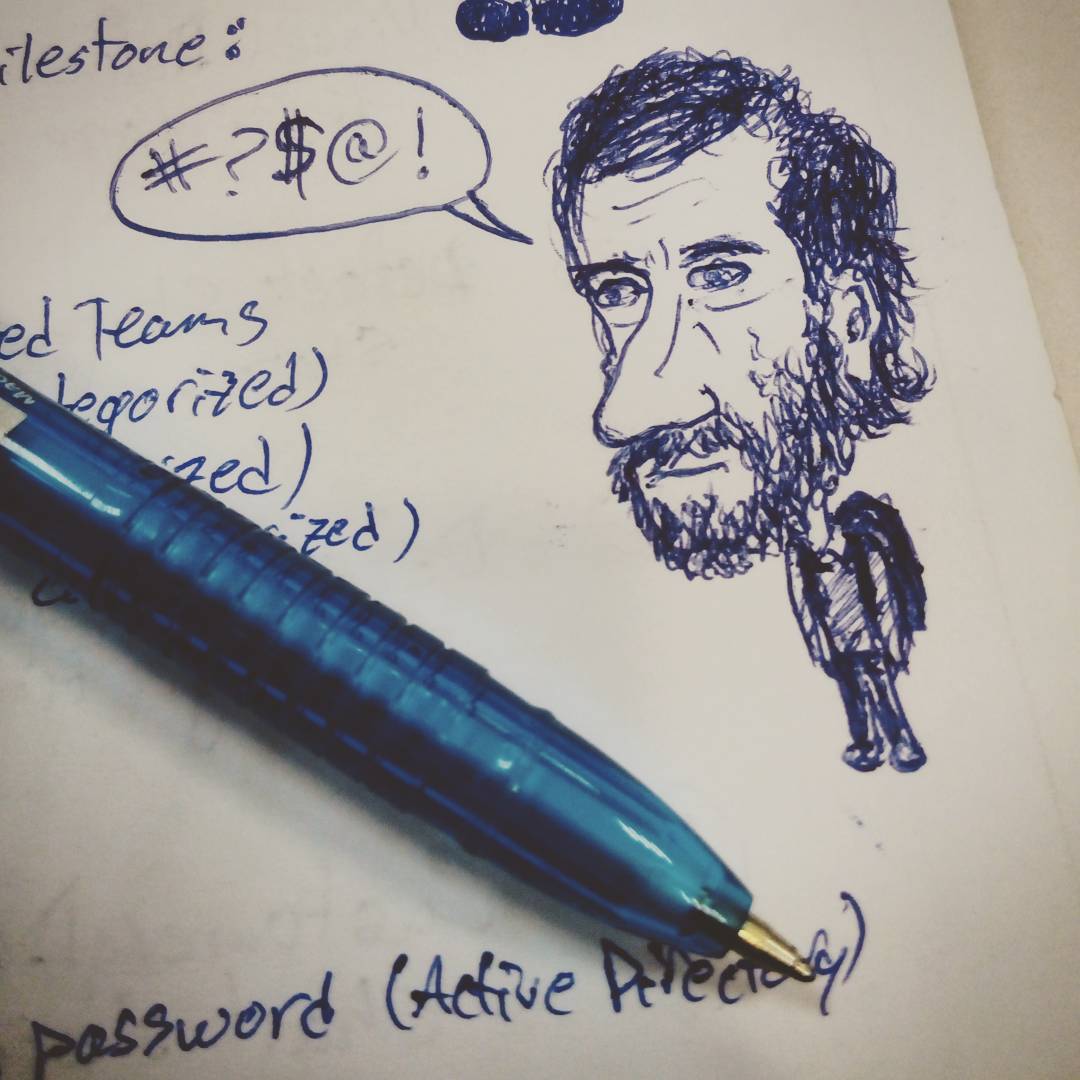 ilestone:
#?$@!
ed Teams
egorized)
ized)
ized)
password (Active Directory)